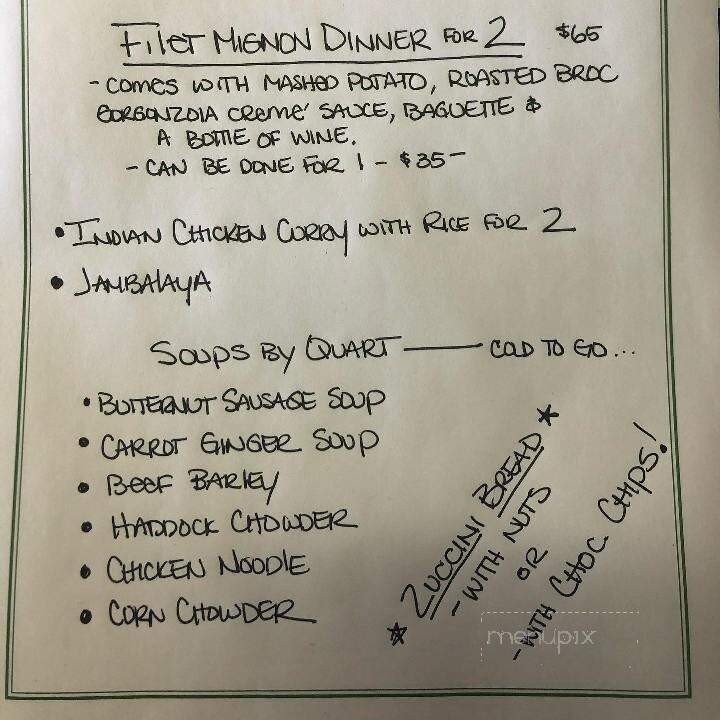 FILET MIGNON DINNER FOR 2 $65
- COMES WITH MASHED POTATO, ROASTED BROC
GORGONZOLA CREME' SAUCE, BAGUETTE &
A BOTTLE OF WINE.
- CAN BE DONE FOR 1 - $35-
• INDIAN CHICKEN CURRY WITH RICE FOR 2
• JAMBALAYA
SOUPS BY QUART — COLD TO GO...
• BUTTERNUT SAUSAGE SOUP
• CARROT GINGER SOUP
• BEEF BARLEY
• HADDOCK CHOWDER
• CHICKEN NOODLE
• CORN CHOWDER
* ZUCCINI BREAD *
- WITH NUTS
OR
- WITH CHOC CHIPS!
menupix